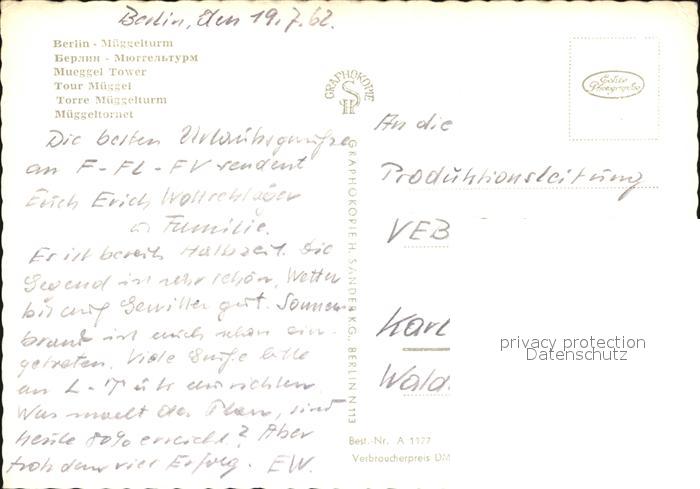 Berlin, den 19.7.62.
Berlin - Müggelturm
Берлин - Мюггельтурм
Mueggel Tower
Tour Müggel
Torre Müggelturm
Müggeltornet
GRAPHOKOPIE
SH
Echte Photographie
Die besten Urlaubsgrüße
an F-FL-FV sendet
Euch Erich Wollschläger
u. Familie.
Es ist bereits Halbzeit. Die
Gegend ist sehr schön, Wetter
bis auf Gewitter gut. Sonnen-
brand ist auch schon ein-
getreten. Viele Grüße bitte
an L-T ausrichten.
Was macht der Plan, sind
heute 80% erreicht? Aber
trotzdem viel Erfolg. EW.
GRAPHOKOPIE H. SANDER KG., BERLIN N 113
An die
Produktionsleitung
VEB
Karl
Wald
privacy protection
Datenschutz
Best.-Nr. A 1177
Verbraucherpreis DM